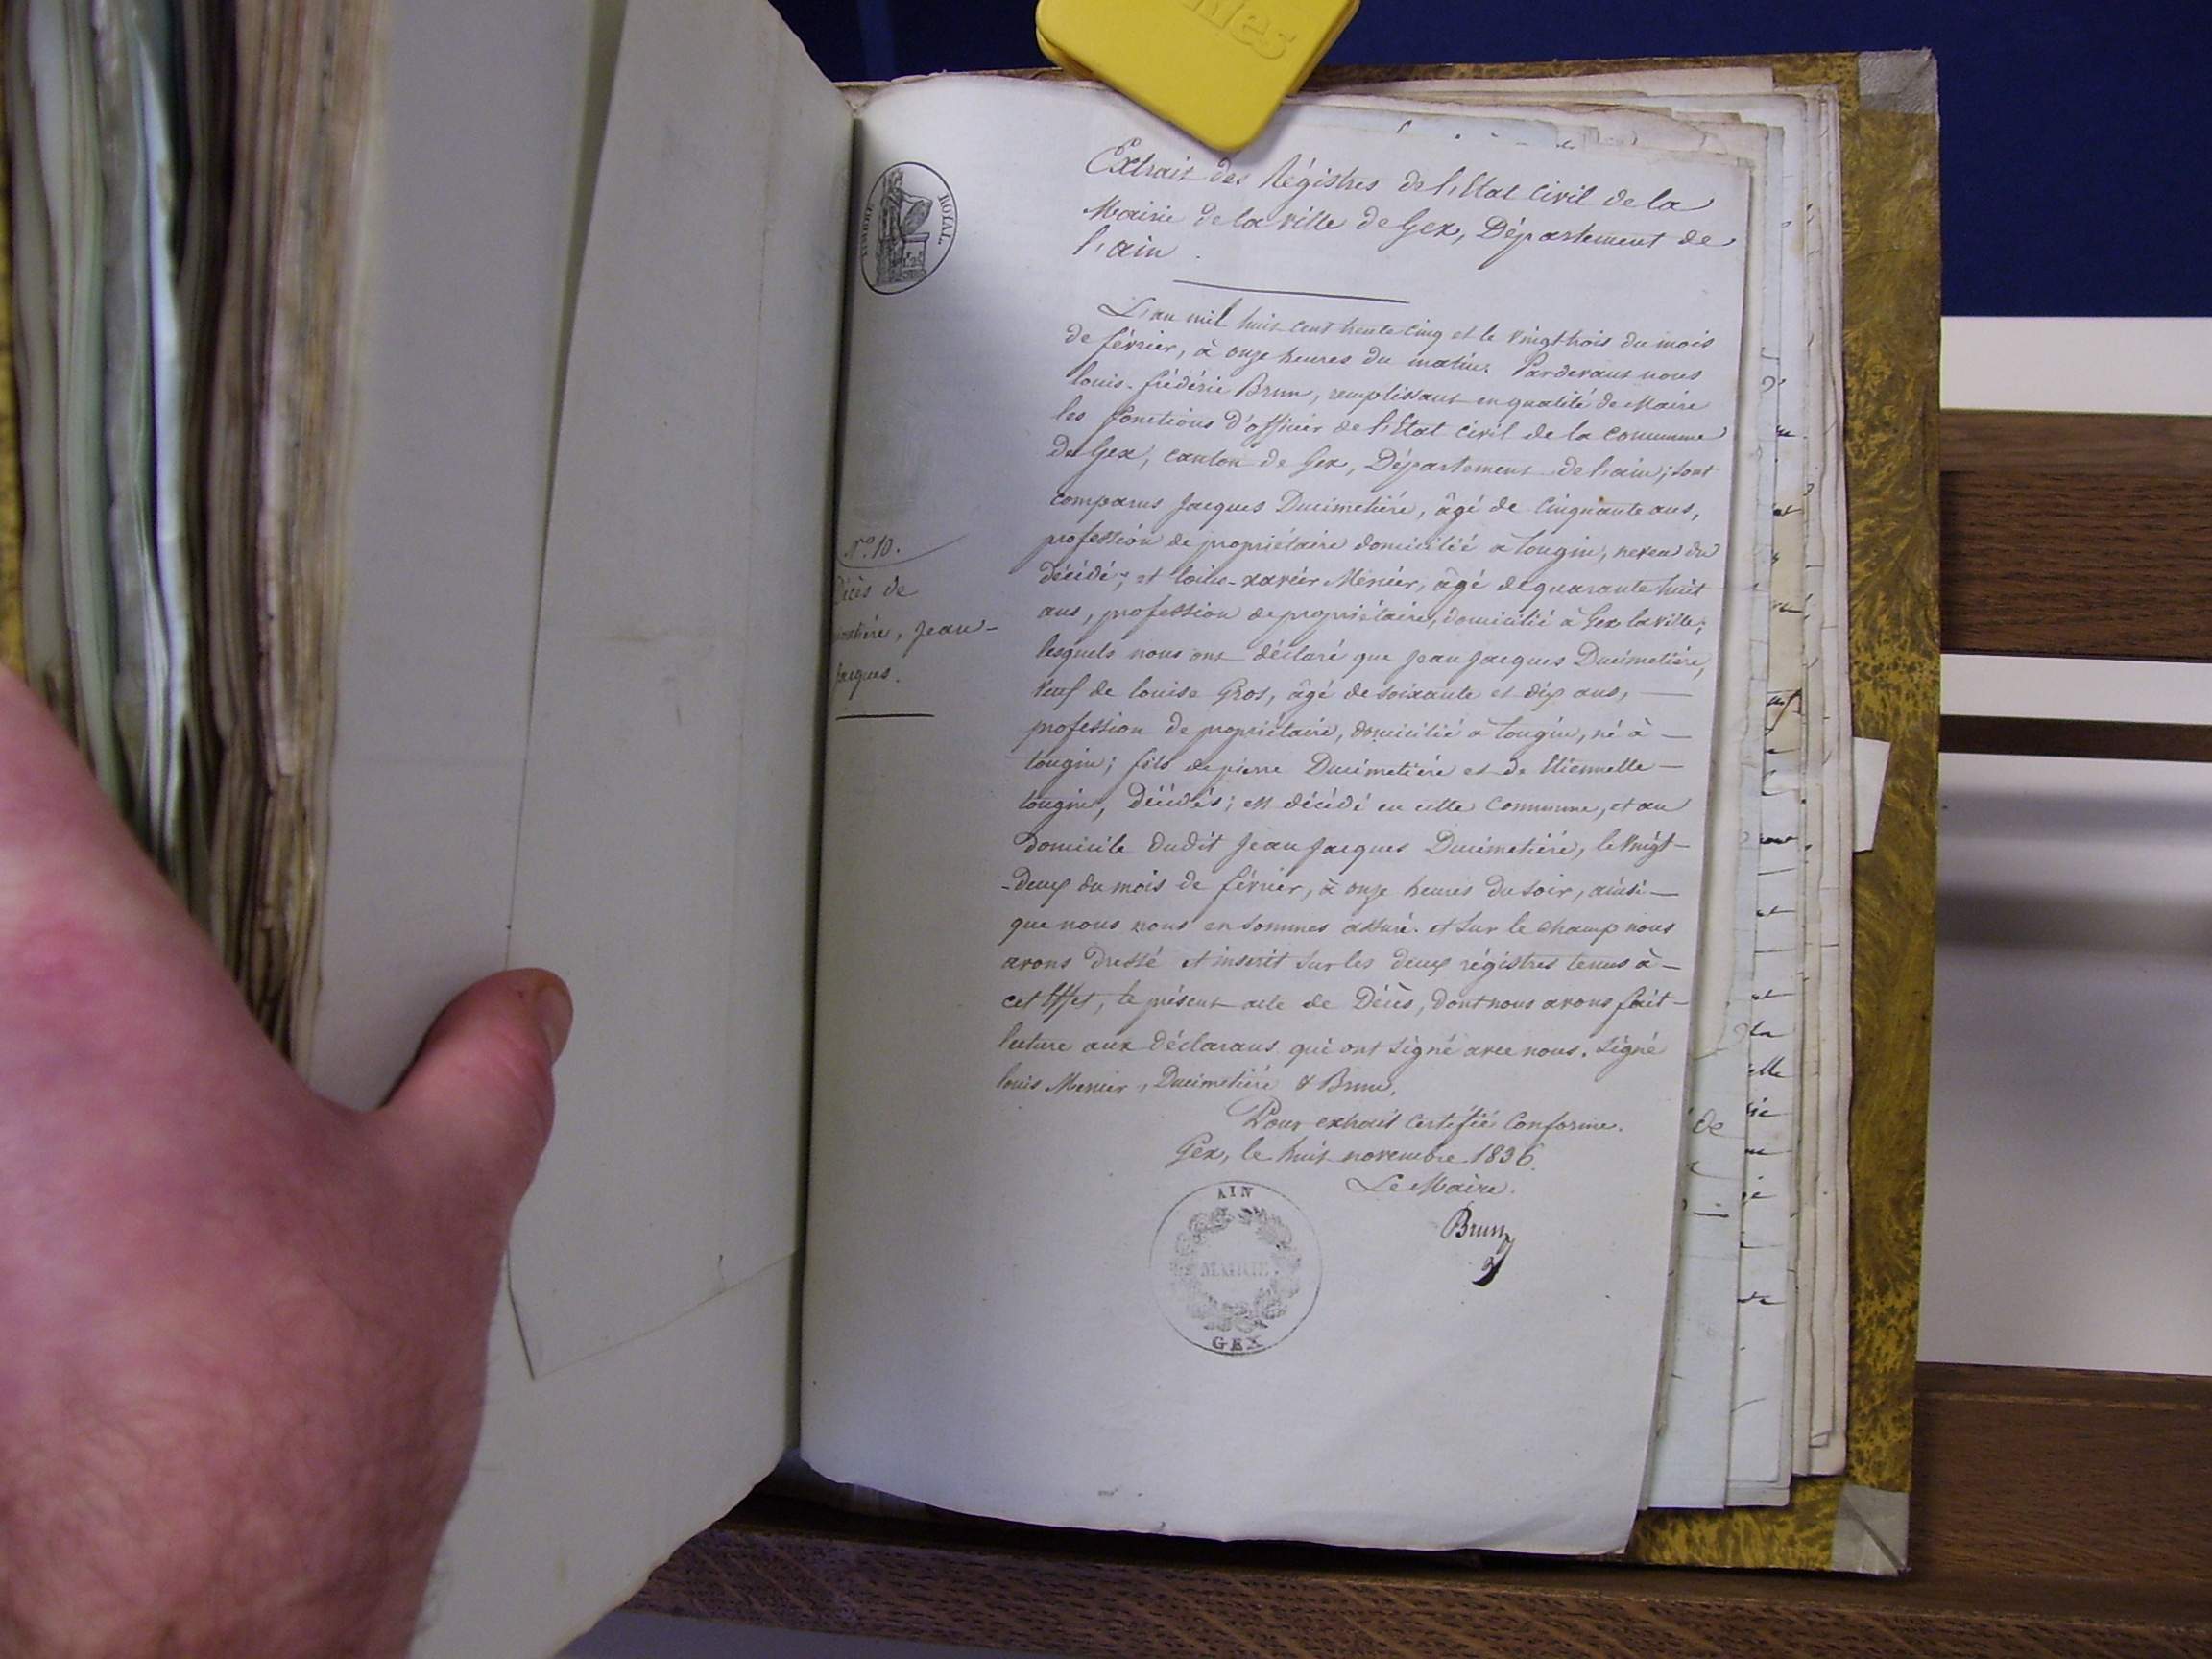 Extrait des Régistres de l'Etat Civil de la
Mairie de la ville de Gex, Département de
l'ain.
TIMBRE ROYAL.
L'an mil huit cent trente cinq et le vingt trois du mois
de février, à onze heures du matin. Pardevant nous
louis-frédéric Brun, remplissant en qualité de Maire
les fonctions d'officier de l'Etat Civil de la commune
de Gex, canton de Gex, Département de l'ain; sont
comparus Jacques Ducimetière, âgé de Cinquante ans,
profession de propriétaire domicilié à tougin, neveu du
décédé; et louis-xavier Ménier, âgé de quarante huit
ans, profession de propriétaire, domicilié à Gex la ville;
lesquels nous ont déclaré que Jean Jacques Ducimetière,
veuf de louise Gros, âgé de soixante et dix ans, —
profession de propriétaire, domicilié à tougin, né à —
tougin; fils de pierre Ducimetière et de Etiennette —
tougin, Décédés; est décédé en cette commune, et au
domicile dudit Jean Jacques Ducimetière, le vingt-
-deux du mois de février, à onze heures du soir, ainsi —
que nous nous en sommes assuré. et sur le champ nous
avons dressé et inscrit sur les deux régistres tenus à —
cet effet, le présent acte de Décès, dont nous avons fait —
lecture aux déclarans qui ont signé avec nous. Signé
louis Menier, Ducimetière & Brun.
Pour extrait certifié conforme.
Gex, le huit novembre 1836.
Le Maire.
Brun
N.º 10.
Décès de
Jean-
Jacques.
AIN
MAIRIE
GEX
de
elle